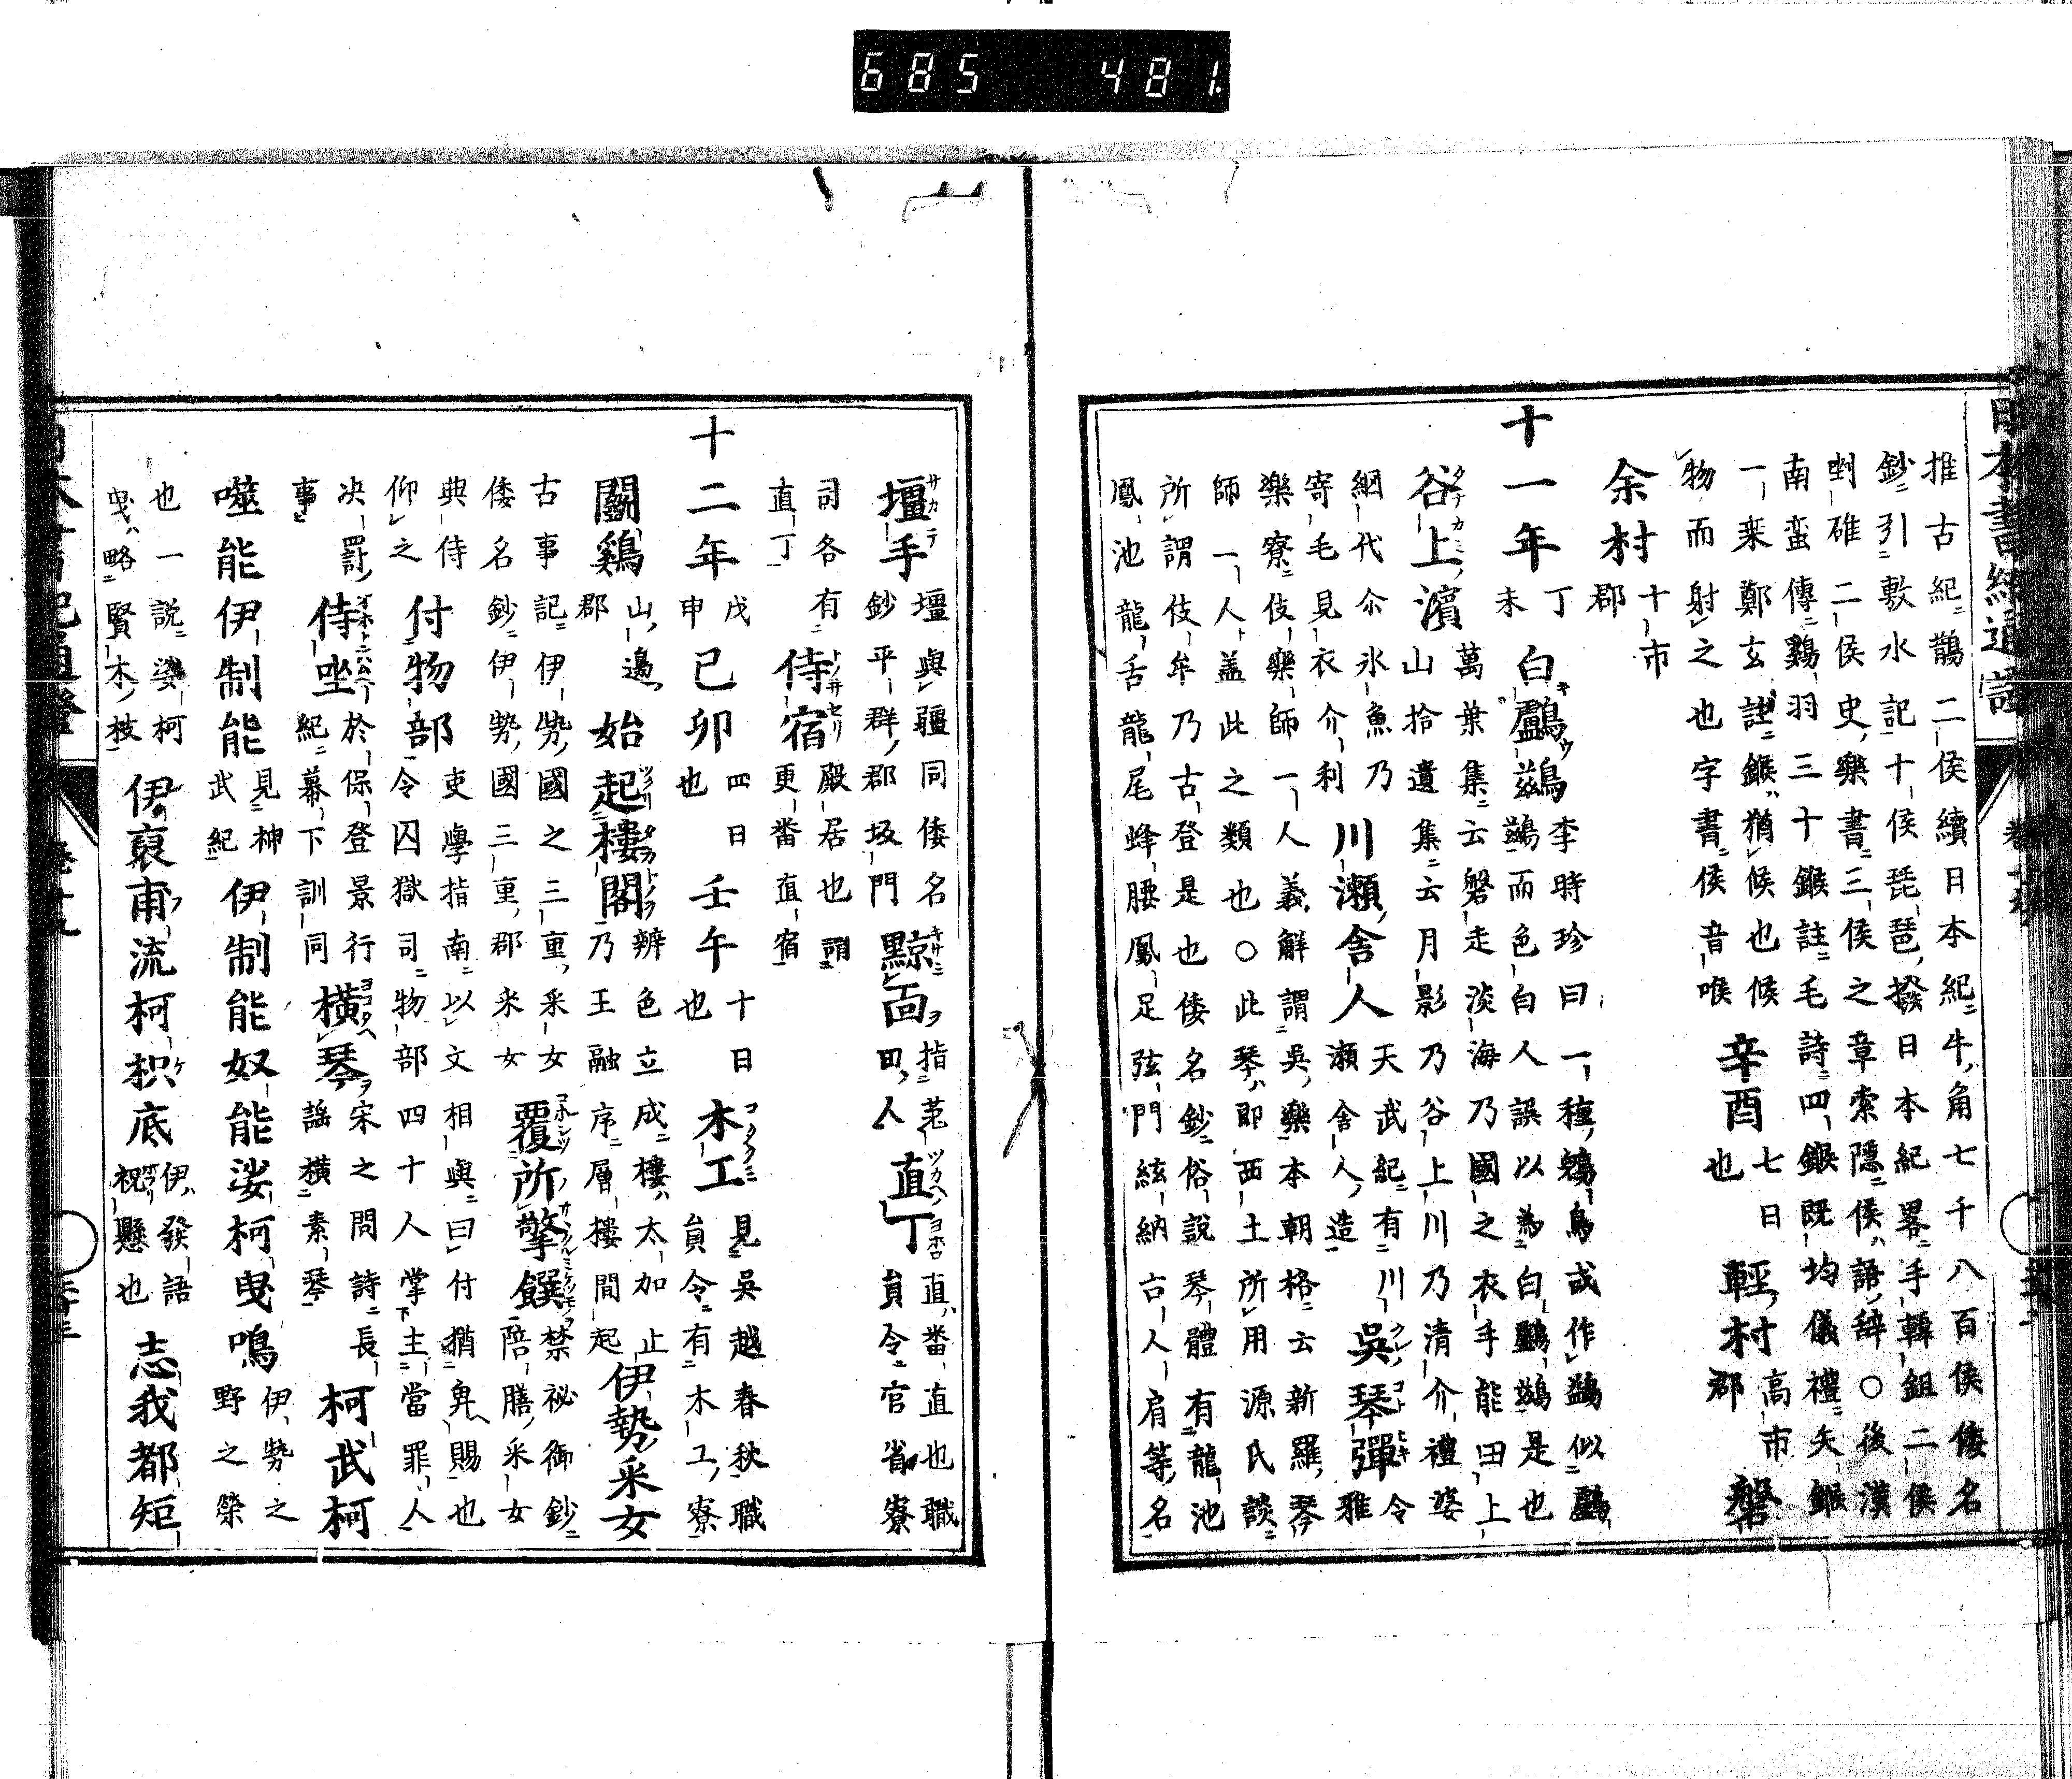 685 481.
推古紀鵲二侯續日本紀牛角七千八百侯倭名
鈔引敷水記十侯琵琶撥日本紀畧手韓鉏二侯
剉碓二侯史樂書三侯之章索隱侯語辞○後漢
南蛮傳鷄羽三十鍭註毛詩四鍭既均儀禮矢鍭
一乗鄭玄註鍭猶候也候
物而射之也字書侯音喉
辛酉 七日也
輕村 高市郡
磐
余村 十市郡
十一年 丁未
白鸕鷀 李時珍曰一種鵜鳥或作鷀似鸕
鷀而色白人誤以為白鸕鷀是也
谷上濱 萬葉集云磐走淡海乃國之衣手能田上
山拾遺集云月影乃谷上川乃清介禮婆
網代尒氷魚乃
寄毛見衣介利
川瀬舎人 天武紀有川
瀬舎人造
吳琴彈 令
雅
樂寮伎樂師一人義解謂吳樂本朝格云新羅琴
師一人盖此之類也○此琴即西土所用源氏談
所謂伎牟乃古登是也倭名鈔俗說琴體有龍池
鳳池龍舌龍尾蜂腰鳳足弦門絃納古人肩等名
壇手 壇與疆同倭名
鈔平群郡坂門
黥面 指茫
田人
直丁 直番直也職
員令官省寮
司各有
直丁
侍宿 殿居也謂
更番直宿
十二年 戊申
己卯 四日也
壬午 十日也
木工 見吳越春秋職
員令有木工寮
鬪鷄 山邊郡
始起樓閣 辨色立成樓太加止
乃王融序層樓間起
伊勢采女
古事記伊勢國之三重采女
倭名鈔伊勢國三重郡采女
覆所擎饌 禁祕御鈔
陪膳采女
典侍
仰之
付物部 吏學指南以文相與曰付猶𢌿賜也
令囚獄司物部四十人掌主當罪人
决罰
事
侍坐於 保登景行
紀幕下訓同
横琴 宋之問詩長
謡横素琴
柯武柯
噬能伊制能 見神武紀
伊制能奴能娑柯曳鳴 伊勢之
野之榮
也一說娑柯
曳略賢木枝
伊裒甫流柯枳底 伊發語
祝懸也
志我都矩